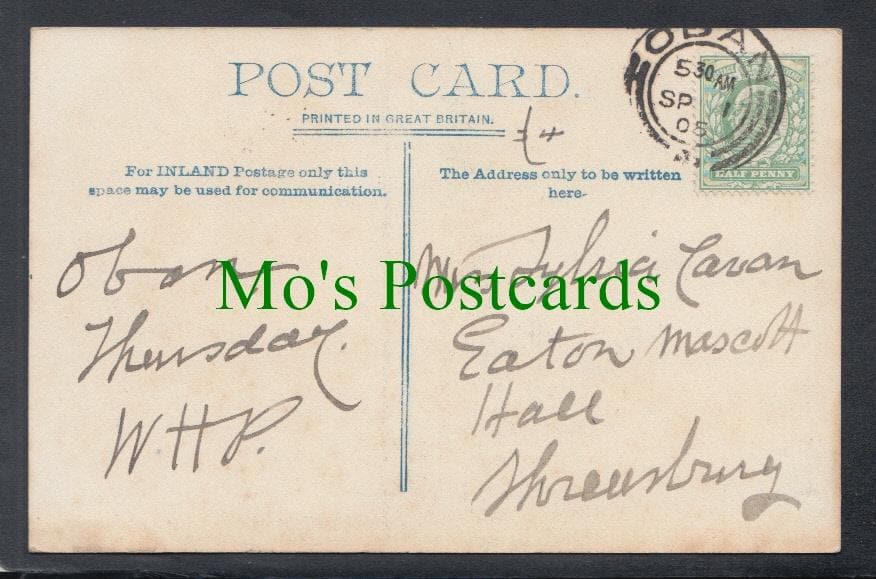 POST CARD.
PRINTED IN GREAT BRITAIN.
For INLAND Postage only this
space may be used for communication.
The Address only to be written
here-
OBAN
5 30 AM
SP 1
05
HALF PENNY
Oban
Thursday.
W H P.
Miss Sylvia Cavan
Eaton Mascott
Hall
Shrewsbury
Mo's Postcards